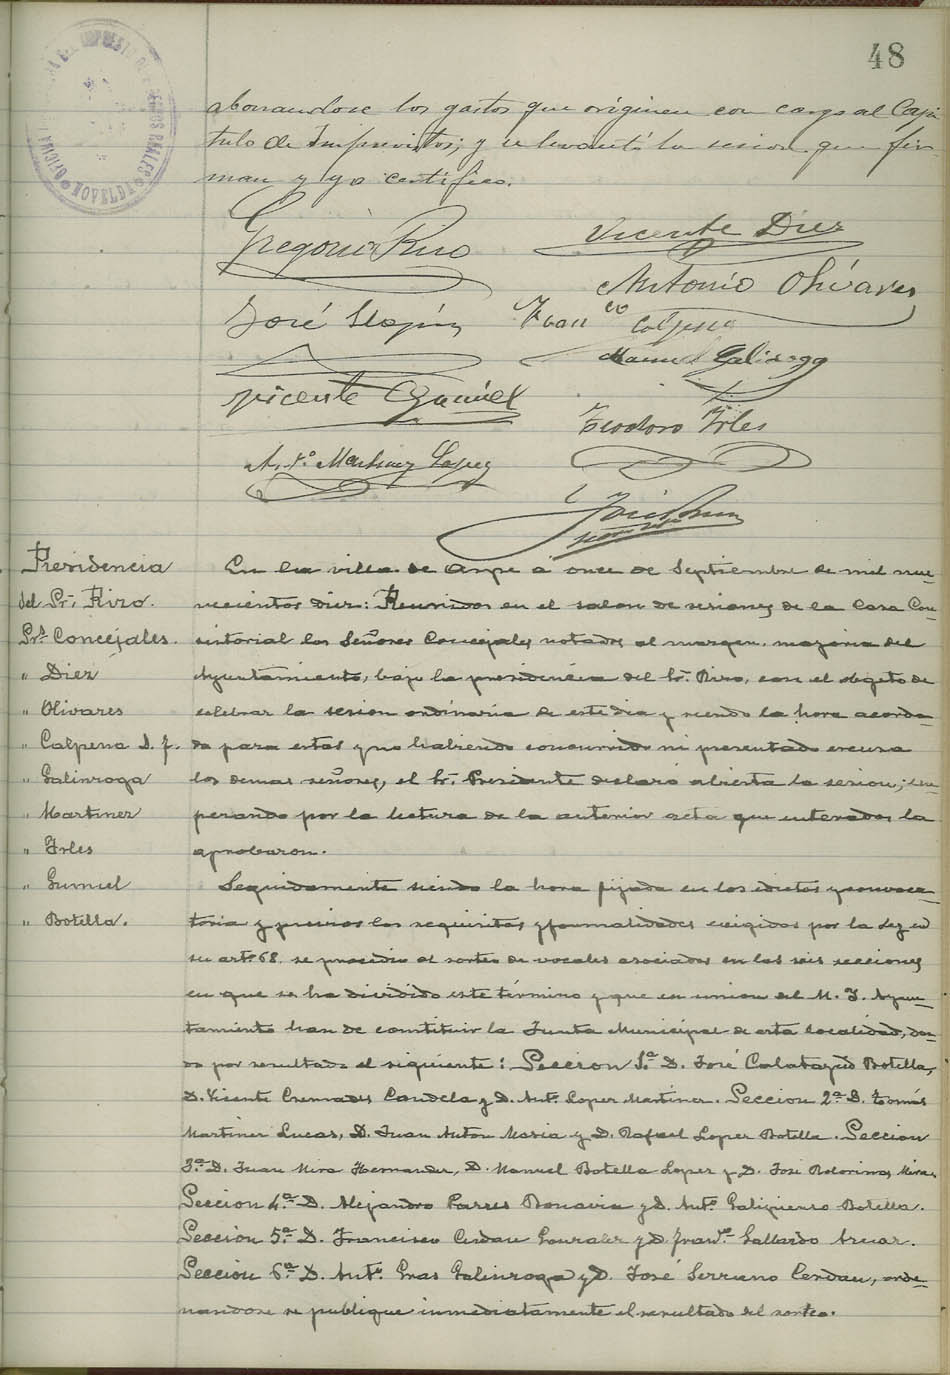 48
abonandose los gastos que originen con cargo al Capi-
tulo de Imprevistos; y se levantó la sesion que fir-
man y yo certifico.
Gregorio Rizo
Vicente Diez
Antonio Olivares
José
Fran co Calpena
Manuel Galinsoga
Vicente Gumiel
Teodoro Irles
A. Martinez Lopez
José
Presidencia
del Sr. Rizo.
Srs Concejales.
" Diez
" Olivares
" Calpena D. f.
" Galinsoga
" Martinez
" Irles
" Gumiel
" Botella.
En la villa de Aspe á once de Septiembre de mil nue-
vecientos diez: Reunidos en el salon de sesiones de la Casa Con-
sistorial los Señores Concejales notados al margen, mayoria del
Ayuntamiento, bajo la presidencia del Sr. Rizo, con el objeto de
celebrar la sesion ordinaria de este dia y siendo la hora acorda-
da para estas y no habiendo concurrido ni presentado excusa
los demas señores, el Sr. Presidente declaró abierta la sesion; em-
pezando por la lectura de la anterior acta que enterados la
aprobaron.
Seguidamente siendo la hora fijada en los edictos y convoca-
toria y previos los requisitos y formalidades exigidos por la Ley en
su artº 68. se procedió al sorteo de vocales asociados en las seis secciones
en que se ha dividido este término y que en union del M. I. Ayun-
tamiento han de constituir la Junta Municipal de esta localidad, dan-
do por resultado el siguiente: Seccion 1ª D. José Calatayud Botella,
D. Vicente Cremades Candela y D. Antº Lopez Martinez. Seccion 2ª D. Tomás
Martinez Lucas, D. Juan Anton Maria y D. Rafael Lopez Botella. Seccion
3ª D. Juan Mira Hernandez, D. Manuel Botella Lopez y D. José Mira.
Seccion 4ª D. Alejandro Parres Bonavia y D. Antº Galipienso Botella.
Seccion 5ª D. Francisco Cerdan Gonzalez y D. Franco Gallardo Aznar.
Seccion 6ª D. Antº Gras Galinsoga y D. José Serrano Cerdan, orde-
nandose se publique inmediatamente el resultado del sorteo.